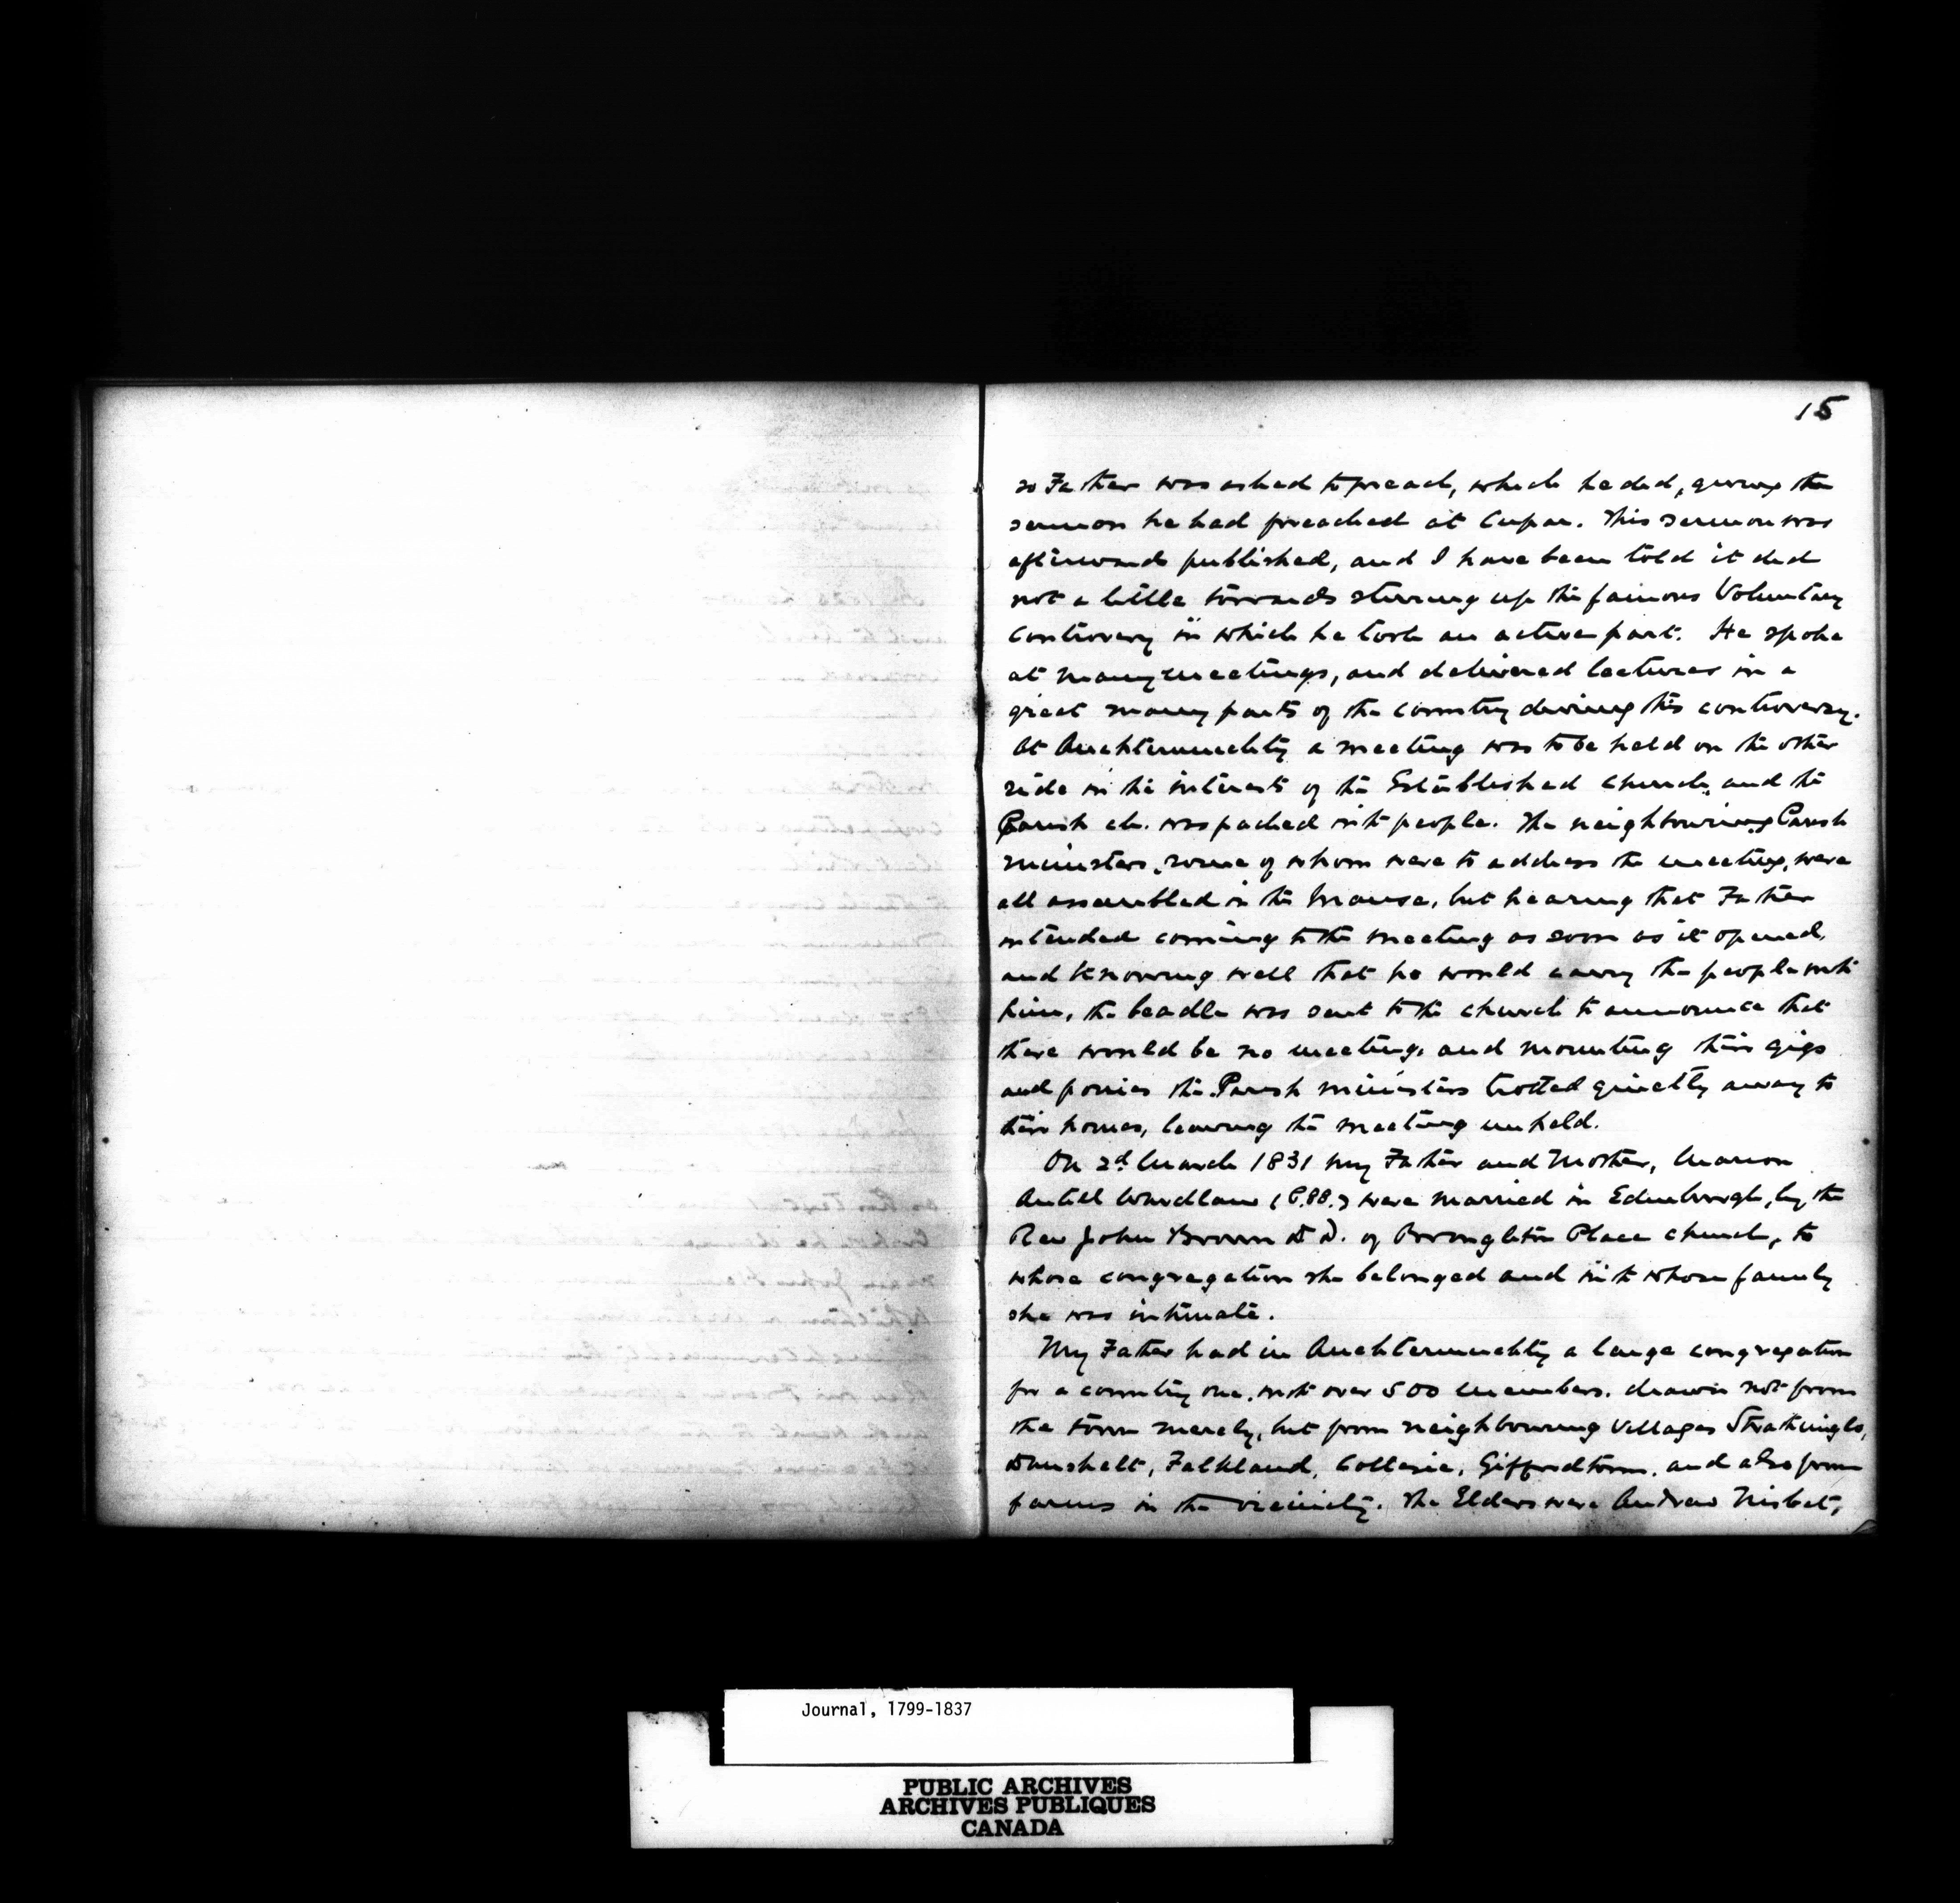 15
so Father was asked to preach, which he did, giving the
sermon he had preached at Cupar. This sermon was
afterwards published, and I have been told it did
not a little towards stirring up the famous Voluntary
Controversy in which he took an active part. He spoke
at many meetings, and delivered lectures in a
great many parts of the country during this controversy.
At Auchtermuchty a meeting was to be held on the other
side in the interests of the Established Church, and the
Parish ch. was packed with people. The neighbouring Parish
ministers, some of whom were to address the meeting, were
all assembled in the Manse, but hearing that Father
intended coming to the meeting as soon as it opened,
and knowing well that he would carry the people with
him, the beadle was sent to the church to announce that
there would be no meeting, and mounting their gigs
and ponies the Parish ministers trotted quietly away to
their homes, leaving the meeting unheld.
On 2d March 1831 my Father and Mother, Marion
Antill Wardlaw (P.88.) were married in Edinburgh, by the
Rev John Brown D D. of Broughton Place church, to
whose congregation she belonged and with whose family
she was intimate.
My Father had in Auchtermuchty a large congregation
for a country one, with over 500 members, drawn not from
the town merely, but from neighbouring villages Strathmiglo,
Dunshelt, Falkland, Collessie, Giffordtown, and also from
farms in the vicinity. The Elders were Andrew Nisbet,
Journal, 1799-1837
PUBLIC ARCHIVES
ARCHIVES PUBLIQUES
CANADA